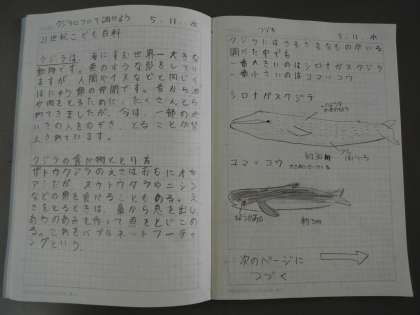 クジラについて調べよう 5.11.水
21世紀こども百科
クジラは、海にすむ世界一大きな
動物です。魚のような形をしてい
ますが、人間やイヌなどと同じく
ほにゅう類の仲間です。昔から油
や肉をとるために、たくさんとら
れてきましたが、今は、一部のぞ
いての人をのぞき、とることが禁
止されています。
クジラの食べ物ととり方
ザトウクジラのえさはおもにオキ
アミだが、スケトウダラやニシン
などの魚を食べることもある。え
さをとるときは、鼻から息を出し
あわのあみを作って魚をとじこめ
る。これをバブルネットフィーディ
ングという。
つづき 5.11.水
クジラにはさまざまなものがいる
調べた中でも
一番大きいのはシロナガスクジラ
一番小さいのはコマッコウ
シロナガスクジラ
約30m
コマッコウ
約3m
次のページに
つづく